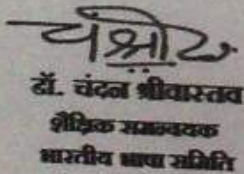 डॉ. चंदन श्रीवास्तव
शैक्षिक समन्वयक
भारतीय भाषा समिति